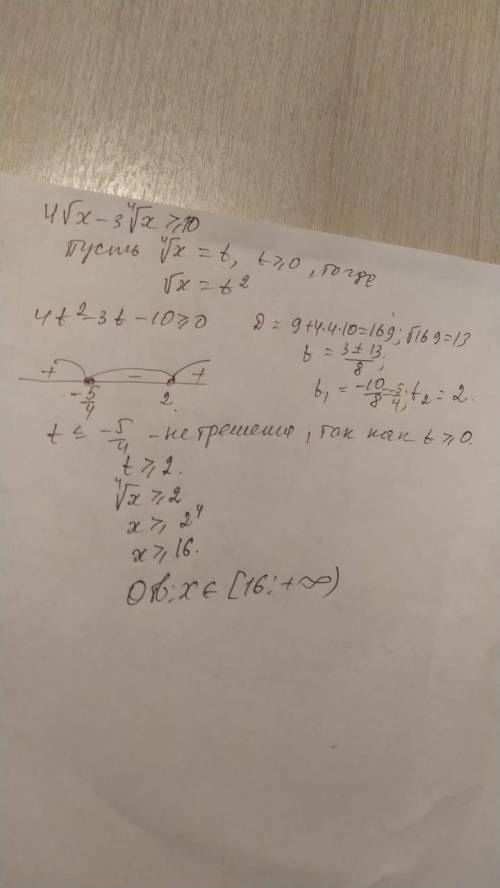 4√x - 3⁴√x ≥ 10
Пусть ⁴√x = t, t ≥ 0, тогда
√x = t²
4t² - 3t - 10 ≥ 0
D = 9 + 4·4·10 = 169; √169 = 13
t = (3 ± 13)/8;
t₁ = -10/8 = -5/4; t₂ = 2.
+ - +
-5/4 2.
t ≤ -5/4 - нет решения, так как t ≥ 0.
t ≥ 2.
⁴√x ≥ 2
x ≥ 2⁴
x ≥ 16.
Отв: x ∈ [16; +∞)